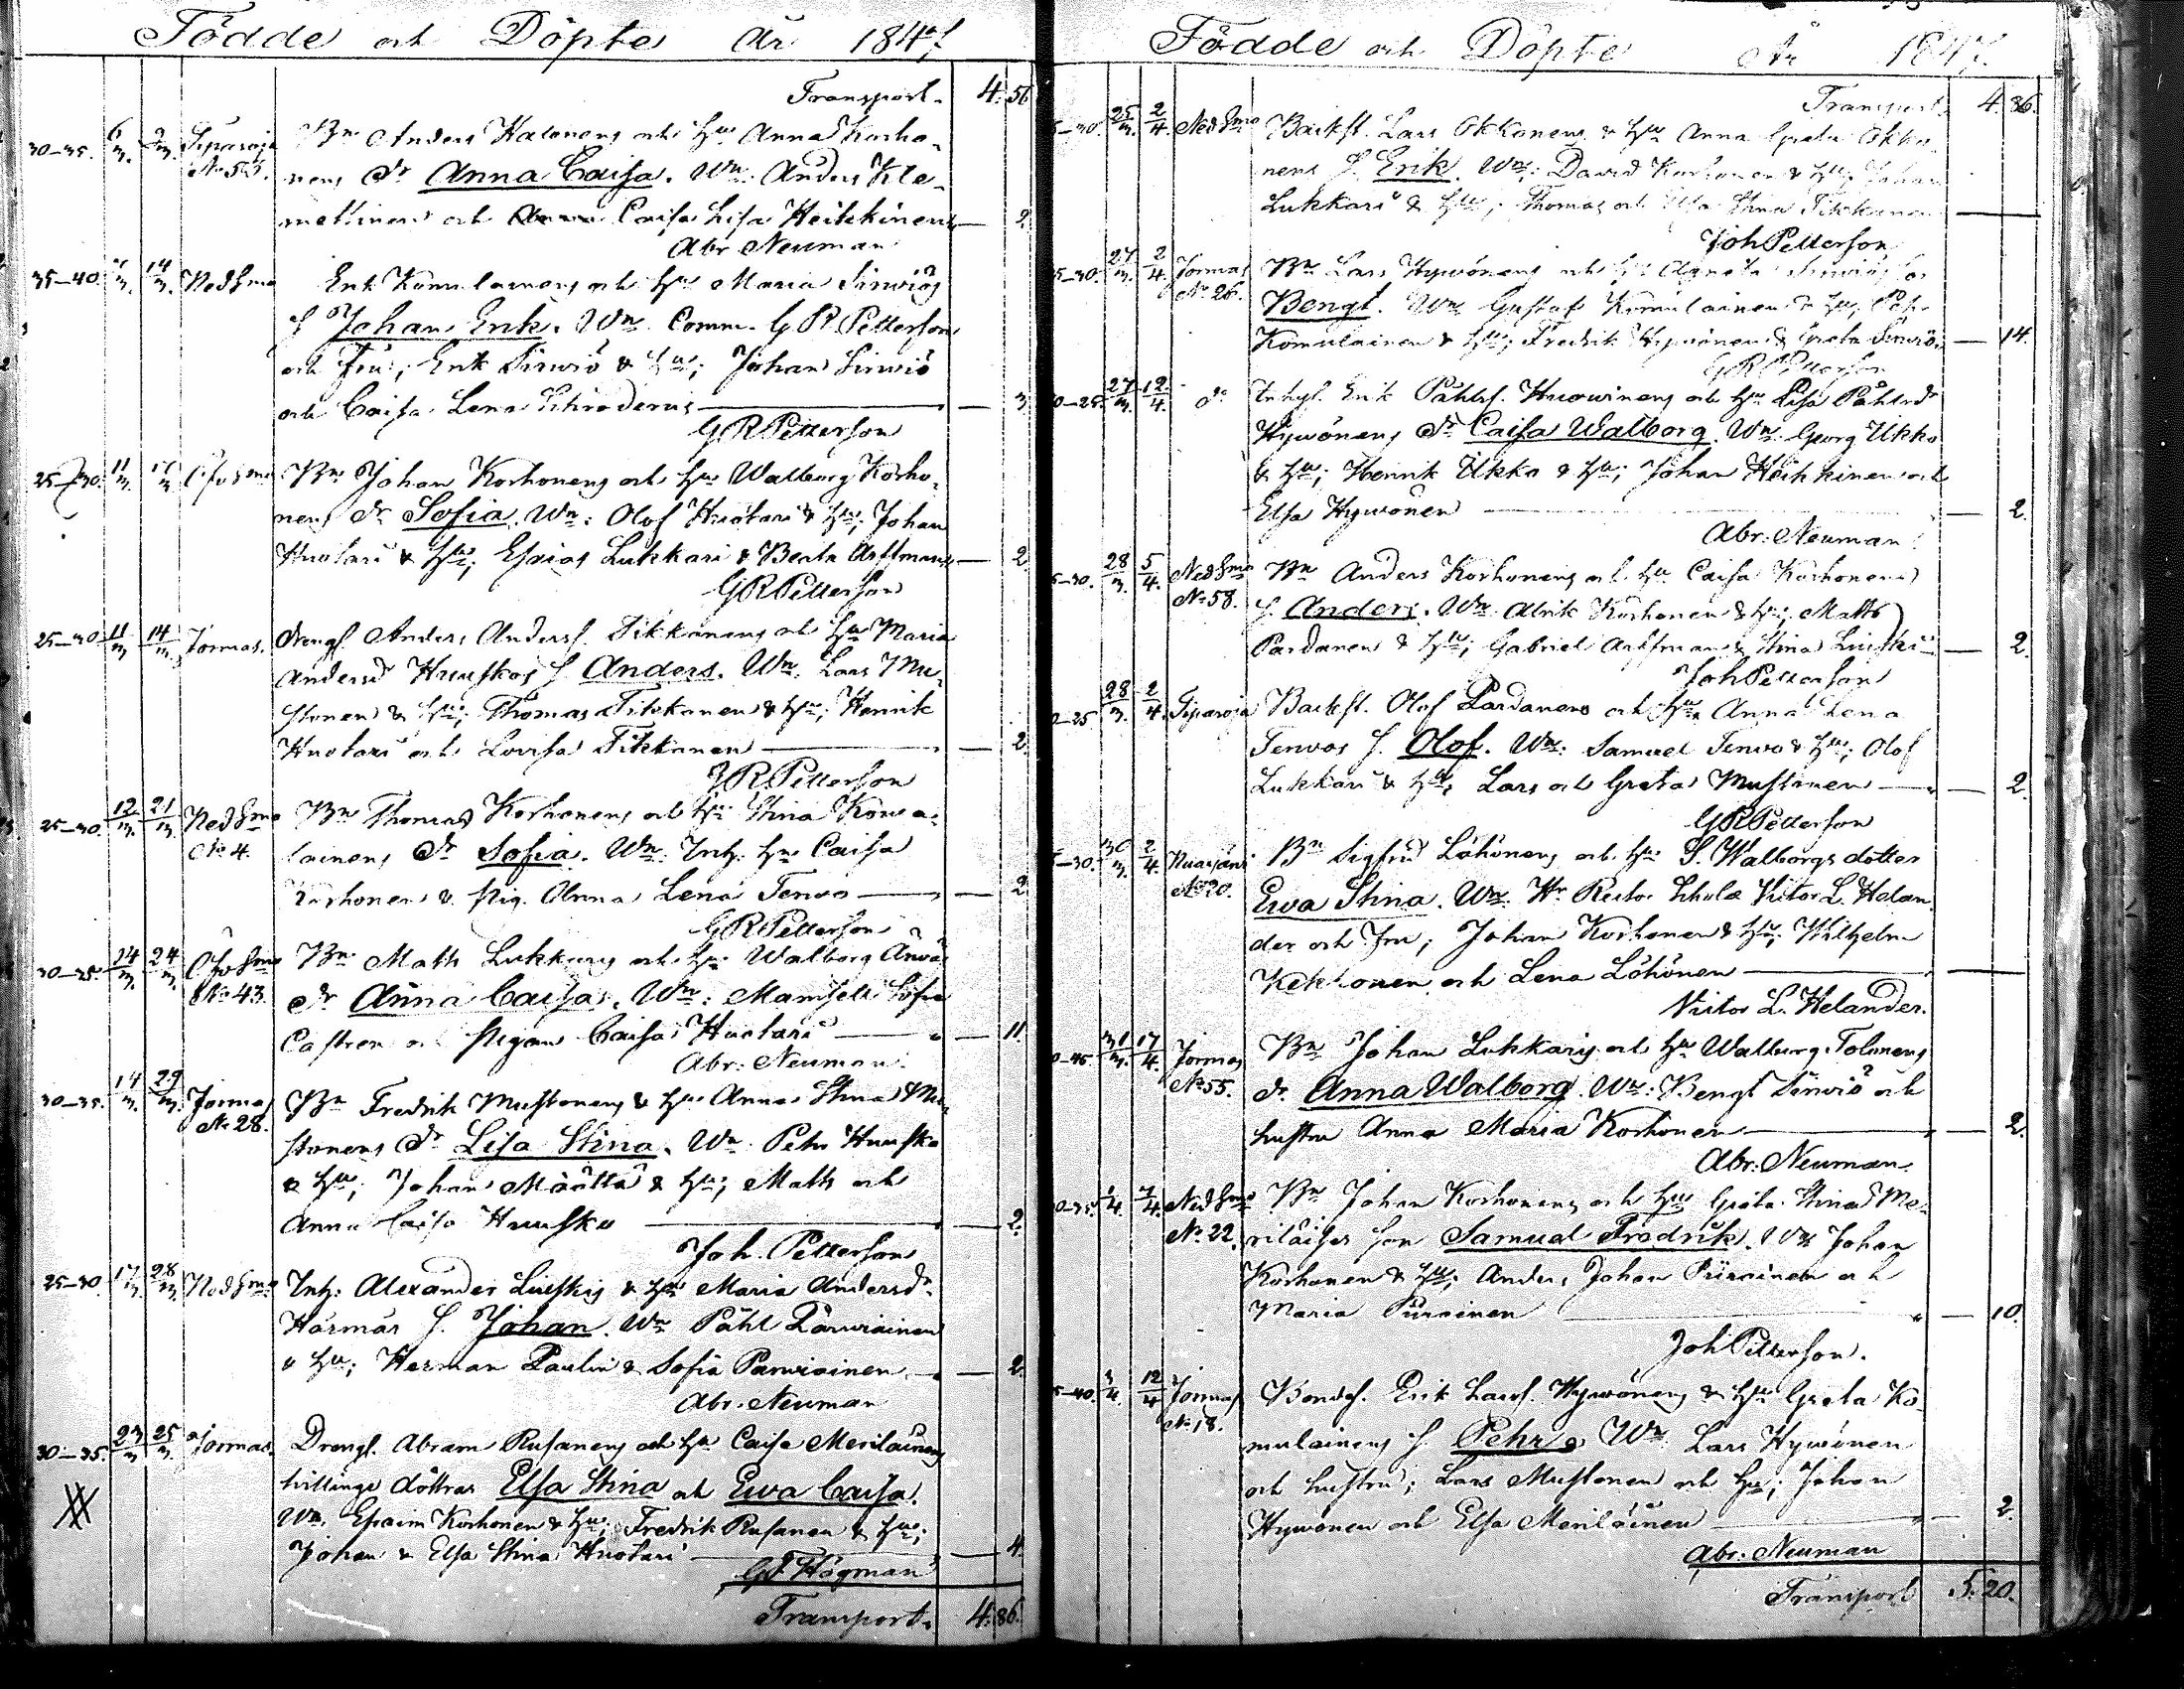 Födde och Döpte År 1847
Transport. 4. 56
30–35. 6/3. 7/3. Sipasoja Bn Anders Halonens och Hu Anna Korho-
No 53. nens dr Anna Caisa. Wn: Anders Kle-
mettinen och Caisa Lisa Heikkinen — 2.
Abr Neuman
35–40. 14/3. Ned Smo Erik Komulainens och Hu Maria Sirviös
S Johan Erik. Wn. Comm. G R Petterson
och Fru; Erik Sirwiö & Hu; Johan Sirwiö
och Caisa Lena Schroderus — 3
G R Petterson
25–30. 11/3. Öfv Smo Bn Johan Korhonens och Hu Walborg Korho-
nens dr Sofia. Wn: Olof Huotari & Hu; Johan
Huotari & Hu; Esaias Lukkari & Beata Arffman — 2
G R Petterson
25–30 11/3 14/3 Jormas. Drengs. Anders Anderss. Tikkanens och Hu Maria
Andersdr Huuskos S Anders. Wn. Lars Mu-
stonen & Hu; Thomas Tikkanen & Hu; Henrik
Huotari och Lovisa Tikkanen — 2.
G R Petterson
25–30. 12/3. 21/3 Ned Smo Bn Thomas Korhonens och Hu Stina Kowa-
No 4. lainens dr Sofia. Wn: Inh. Hn Caisa
Korhonen & Pig. Anna Lena Terwo — 2
G R Petterson
30–35. 14/3. 24/3. Öfv Smo Bn Matts Lukkaris och Hu Walborg
No 43. dr Anna Caisa. Wn: Mamsell Sofia
Castren och Pigan Caisa Huotari — 11
Abr: Neuman.
30–35. 14/3. 29/3. Jormas Bn Fredrik Mustonens & Hu Anna Stina Mu-
No 28. stonens dr Lisa Stina. Wn. Pehr Huusko
& Hu; Johan Määttä & Hu; Matts och
Anna Caisa Huusko — 2.
Joh. Petterson
25–30 17/3. 28/3. Ned Smo Inh: Alexander Luskis & Hu Maria Andersdr
Härmäs S. Johan. Wn Påhl Parviainen
& Hu; Herman Paulin & Sofia Parwiainen — 2
Abr: Neuman
30–35. 23/3 25/3. Jormas. Drengs. Abram Rusanens och Hu Caisa Meriläinens
tvillinge döttrar Elsa Stina och Ewa Caisa.
Wn. Efraim Korhonen & Hu; Fredrik Rusanen & Hu;
Johan & Elsa Stina Huotari — 4.
Högman
Transport. 4. 86.
Födde och Döpte År 1847.
Transport. 4. 86.
–30. 25/3. 2/4. Ned Smo Backst. Lars Okkonens & Hu Anna Greta Okko-
nens S. Erik. Wn: David Korhonen & Hu; Johan
Lukkari & Hu; Thomas och Elsa Stina Tikkanen —
Joh Petterson
–30. 27/3. 2/4. Jormas Bn Lars Hywönens och Hu Agneta Sirwiös son
No 26. Bengt. Wn Gustaf Komulainen & Hu; Pehr
Komulainen & Hu; Fredrik Hywönen & Greta Sirwiö — 14.
G R Petterson
–25. 27/3. 12/4. do Inhys. Erik Påhls. Huowinens och Hu Lisa Påhlsdr
Hywönens dr Caisa Walborg. Wn. Georg Ukko
& Hu; Henrik Ukko & Hu; Johan Heikkinen och
Elsa Hywönen — 2.
Abr: Neuman
–30. 28/3. 5/4. Ned Smo Bn Anders Korhonens och Hu Caisa Korhonens
No 58. S. Anders. Wn Alrik Korhonen & Hu; Matts
Pardanen & Hu; Gabriel Arffman & Stina — 2.
Joh Petterson
–25 28/3. 2/4. Sipasoja Backst. Olof Pardanens och Hu Anna Lena
Terwos S. Olof. Wn: Samuel Terwo & Hu; Olof
Lukkari & Hu; Lars och Greta Mustonen — 2.
G R Petterson
–30. 30/3. 2/4. Bn Sigfrid Löhönens och Hu S. Walborgs dotter
No 20. Ewa Stina. Wn. Hr Rector Scholæ Victor L. Helan-
der och Fru; Johan Korhonen & Hu; Wilhelm
Kekkonen och Lena Löhönen —
Victor L. Helander.
–45. 31/3. 17/4. Jormas Bn Johan Lukkaris och Hu Walborg Tolonens
No 55. dr Anna Walborg. Wn: Bengt Sirwiö och
hustru Anna Maria Korhonen — 2.
Abr: Neuman.
–35. 1/4. 7/4. Ned Smo Bn Johan Korhonens och Hu Greta Stina Me-
No 22. riläises son Samuel Fredrik. Wn Johan
Korhonen & Hu; Anders Johan Piirainen och
Maria Piirainen — 10.
Joh Petterson.
–40. 3/4. 12/4 Jormas Bondes. Erik Larss. Hywönens & Hu Greta Ko-
No 18. mulainens S Pehr. Wn Lars Hywönen
och hustru; Lars Mustonen och Hu; Johan
Hywönen och Elsa Meriläinen — 2.
Abr: Neuman
Transport 5. 20.